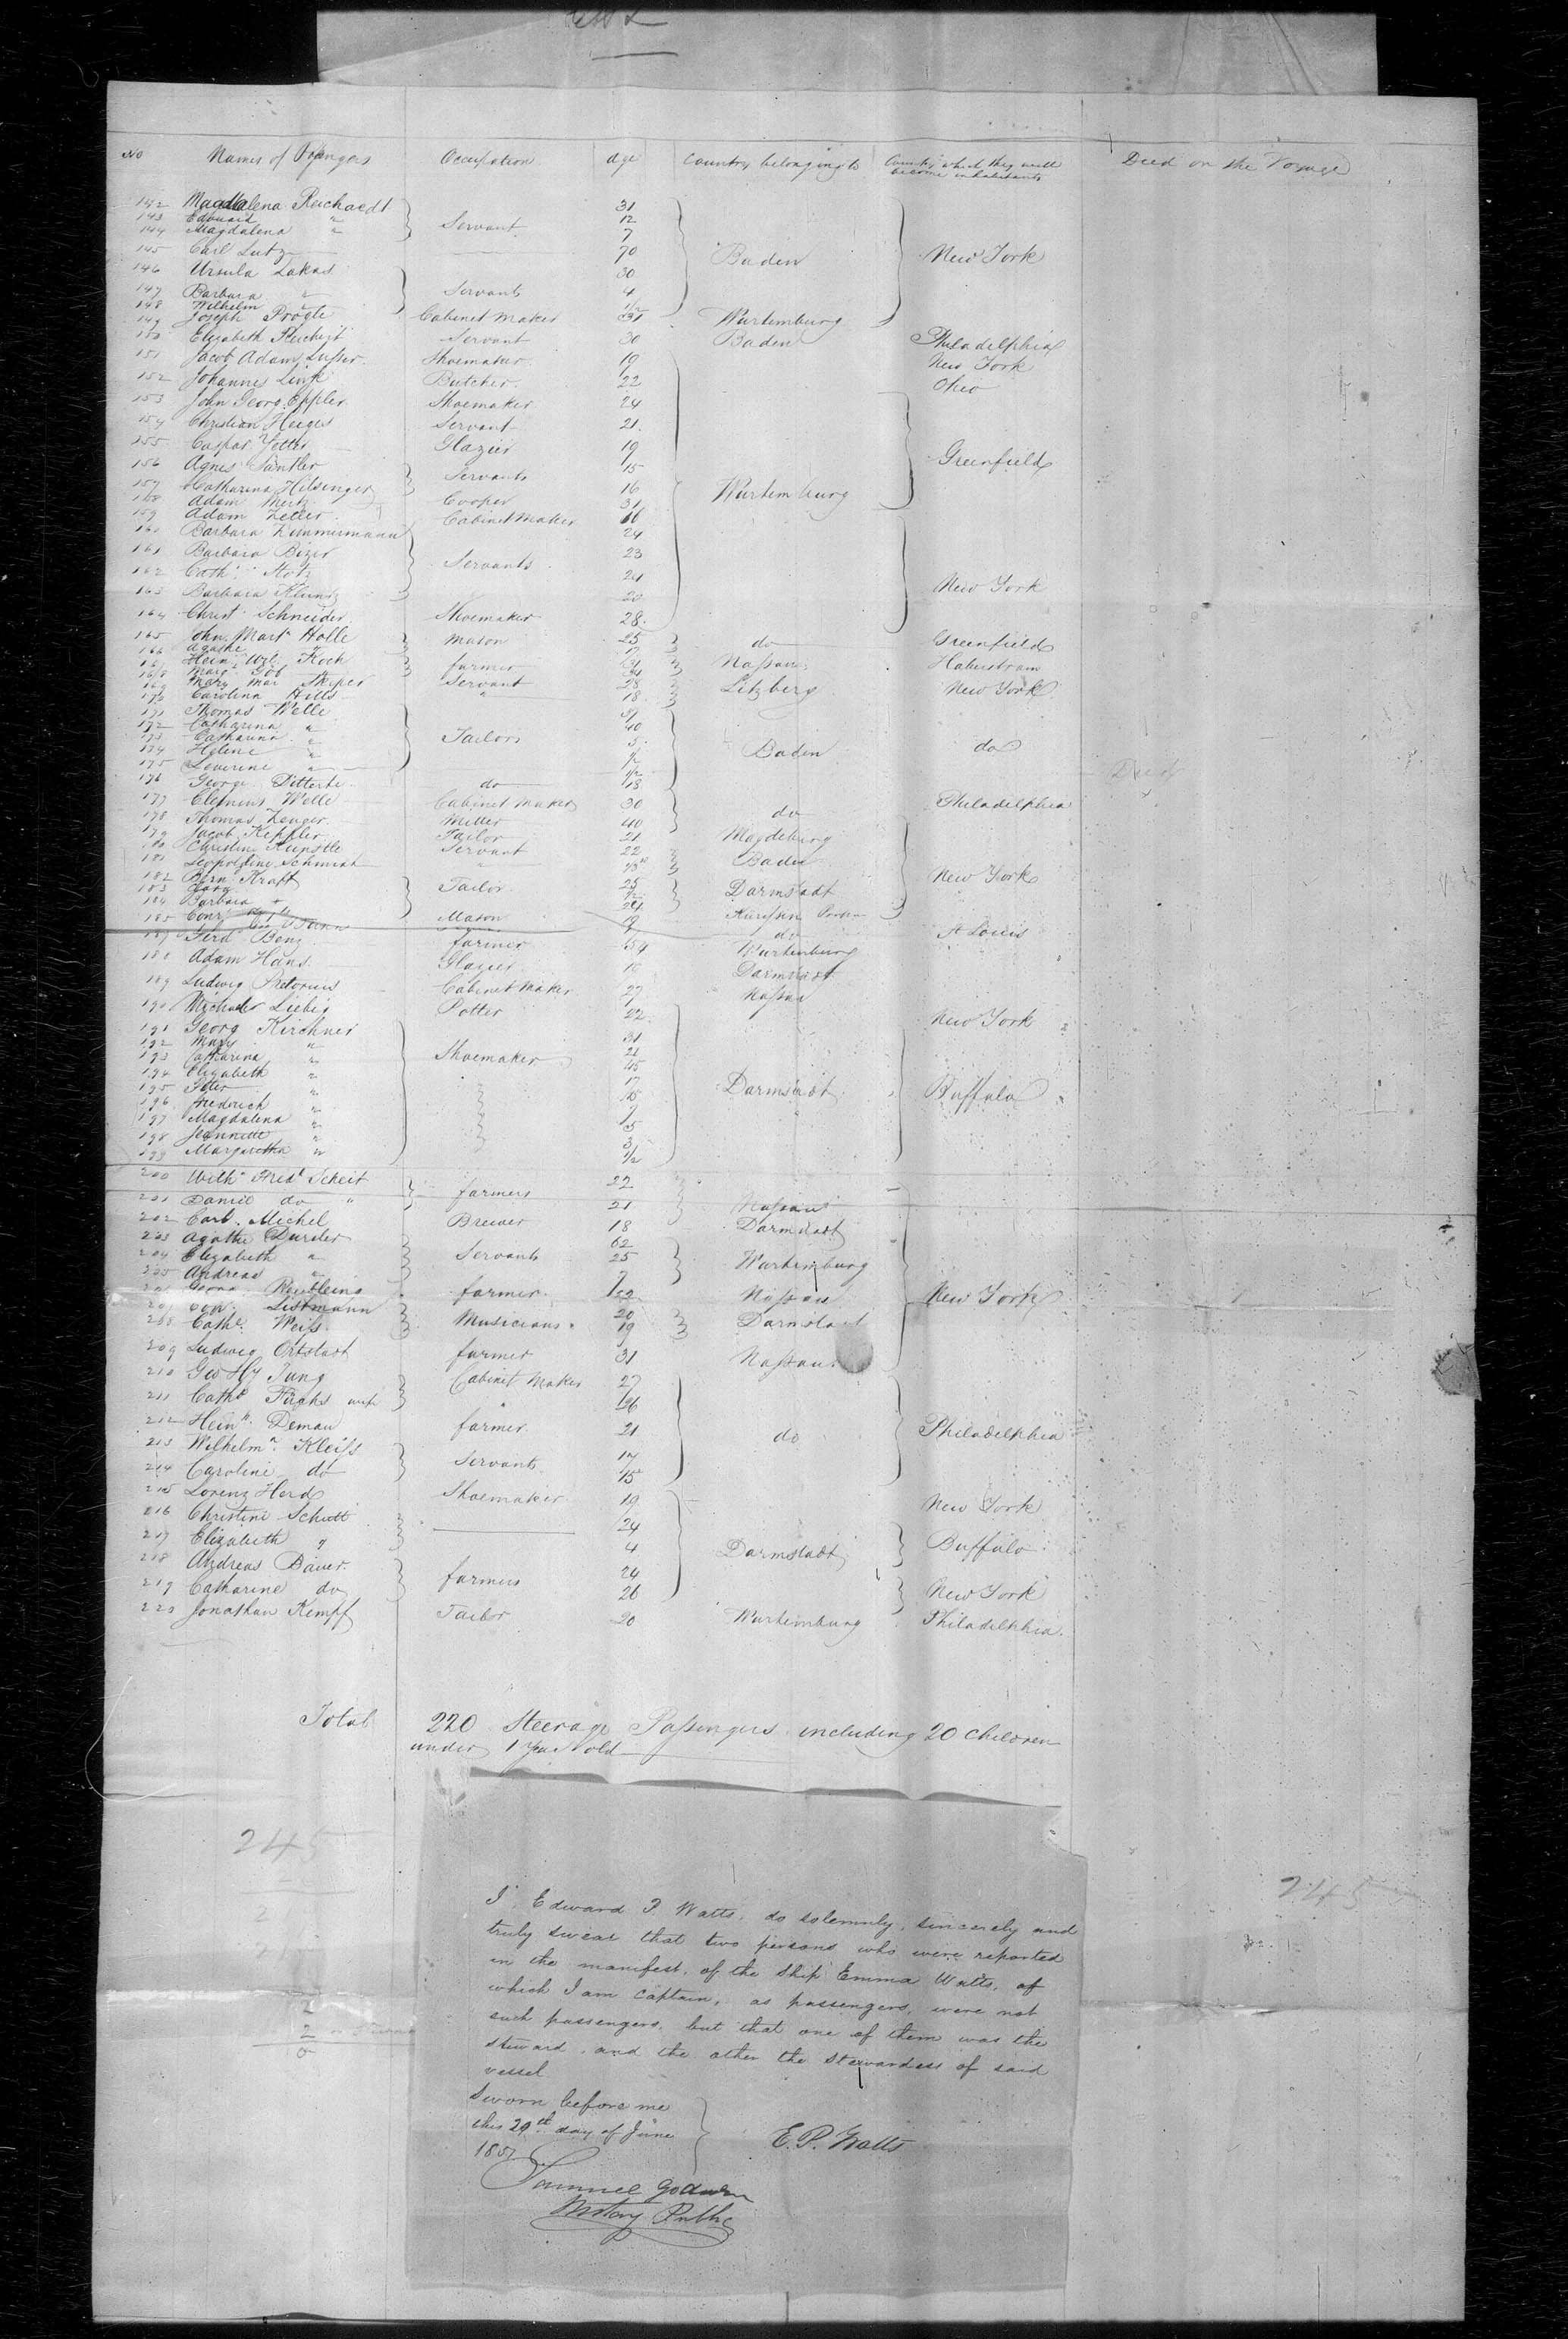 No Names of Passengers Occupation Age Country belonging to Country which they will become inhabitants Died on the Voyage
142 Magdalena Reichardt 31
143 Edouard " Servant 12
144 Magdalena " 7
145 Carl Lutz 70 Baden New York
146 Ursula Lakas 30
147 Barbara " Servants 4
148 Wilhelm " 1/2
149 Joseph Progle Cabinet Maker Wurtemburg
150 Elizabeth Servant 30 Baden Philadelphia
151 Jacob Adam Lusser Shoemaker 19 New York
152 Johannes Link Butcher 22 Ohio
153 John Georg Eppler Shoemaker 24
154 Christian Heiges Servant 21
155 Caspar Yetter Glazier 19 Greenfield
156 Agnes Santler Servants 15
157 Catharina Hilsinger 16 Wurtemburg
158 Adam Mertz Cooper 31
159 Adam Zeller Cabinet Maker 16
160 Barbara Zimmermann 24
161 Barbara Bizer Servants 23
162 Cath. Stotz 24 New York
163 Barbara Kluntz 20
164 Christ. Schneider Shoemaker 28
165 John Mart. Holle Mason 25 do Greenfield
166 Agathe "
167 Hein. Koch farmer 31 Nassau
168 Marg. 
169 Mary Mar. Servant 28 Litzberg New York
170 Carolina Hills " 18
171 Thomas Welle
172 Catharina " 40
173 Catharina " Tailor 5 Baden do
174 Helene "
175 Severine " 1/2 Died
176 George do 18
177 Clemens Welle Cabinet Maker 30 do Philadelphia
178 Thomas Zenger Miller 40
179 Jacob Keppler Tailor 21 Magdeburg
180 Christine Kunstle Servant 22 Baden
181 Leopoldine Schmidt " New York
182 Bern. Kraft Tailor 25 Darmstadt
183 Georg 1/2
184 Barbara + 24
185 Conr. Mason 19 St Louis
187 Ferd. Benz farmer Wurtemburg
188 Adam Hans Glazier Darmstadt
189 Ludwig Pretorius Cabinet Maker 27 Nassau
190 Michael Liebig Potter 22 New York
191 Georg Kirchner 31
192 Mary " 21
193 Catharina " Shoemaker 45
194 Elizabeth " 17 Darmstadt Buffalo
195 Peter "
196 Friedrich "
197 Magdalena " 5
198 Jeannette " 3
199 Margaretha " 1/2
200 Wilh. Fred. Scheit farmers 22
201 Daniel do " 21 Nassau
202 Carl. Michel Brewer 18 Darmstadt
203 Agathe Dursler 62
204 Elizabeth " Servants 25 Wurtemburg
205 Andreas "
206 Georg farmer 22 Nassau New York
207 Con. Listmann Musicians 20 Darmstadt
208 Cath. Weiss 19
209 Ludwig Ortstadt farmer 31 Nassau
210 Geo Hy Jung Cabinet Maker 27
211 Cath. Fuchs wife " 26
212 Hein. Deman farmer 21 do Philadelphia
213 Wilhelm. Kleiss Servants 17
214 Caroline do 15
215 Lorenz Herd Shoemaker 19 New York
216 Christine Schutt 24
217 Elizabeth " 4 Darmstadt Buffalo
218 Andreas Bauer farmers 24
219 Catharine do 26 New York
220 Jonathan Kempf Tailor 20 Wurtemburg Philadelphia
Total 220 Steerage Passengers including 20 Children
under 1 Year old
245
245
I, Edward P. Watts, do solemnly, sincerely and
truly swear that two persons who were reported
in the manifest of the Ship Emma Watts, of
which I am Captain, as passengers, were not
such passengers, but that one of them was the
steward, and the other the stewardess of said
vessel
Sworn before me
this 29th day of June
185
E. P. Watts
Samuel Godwin
Notary Public